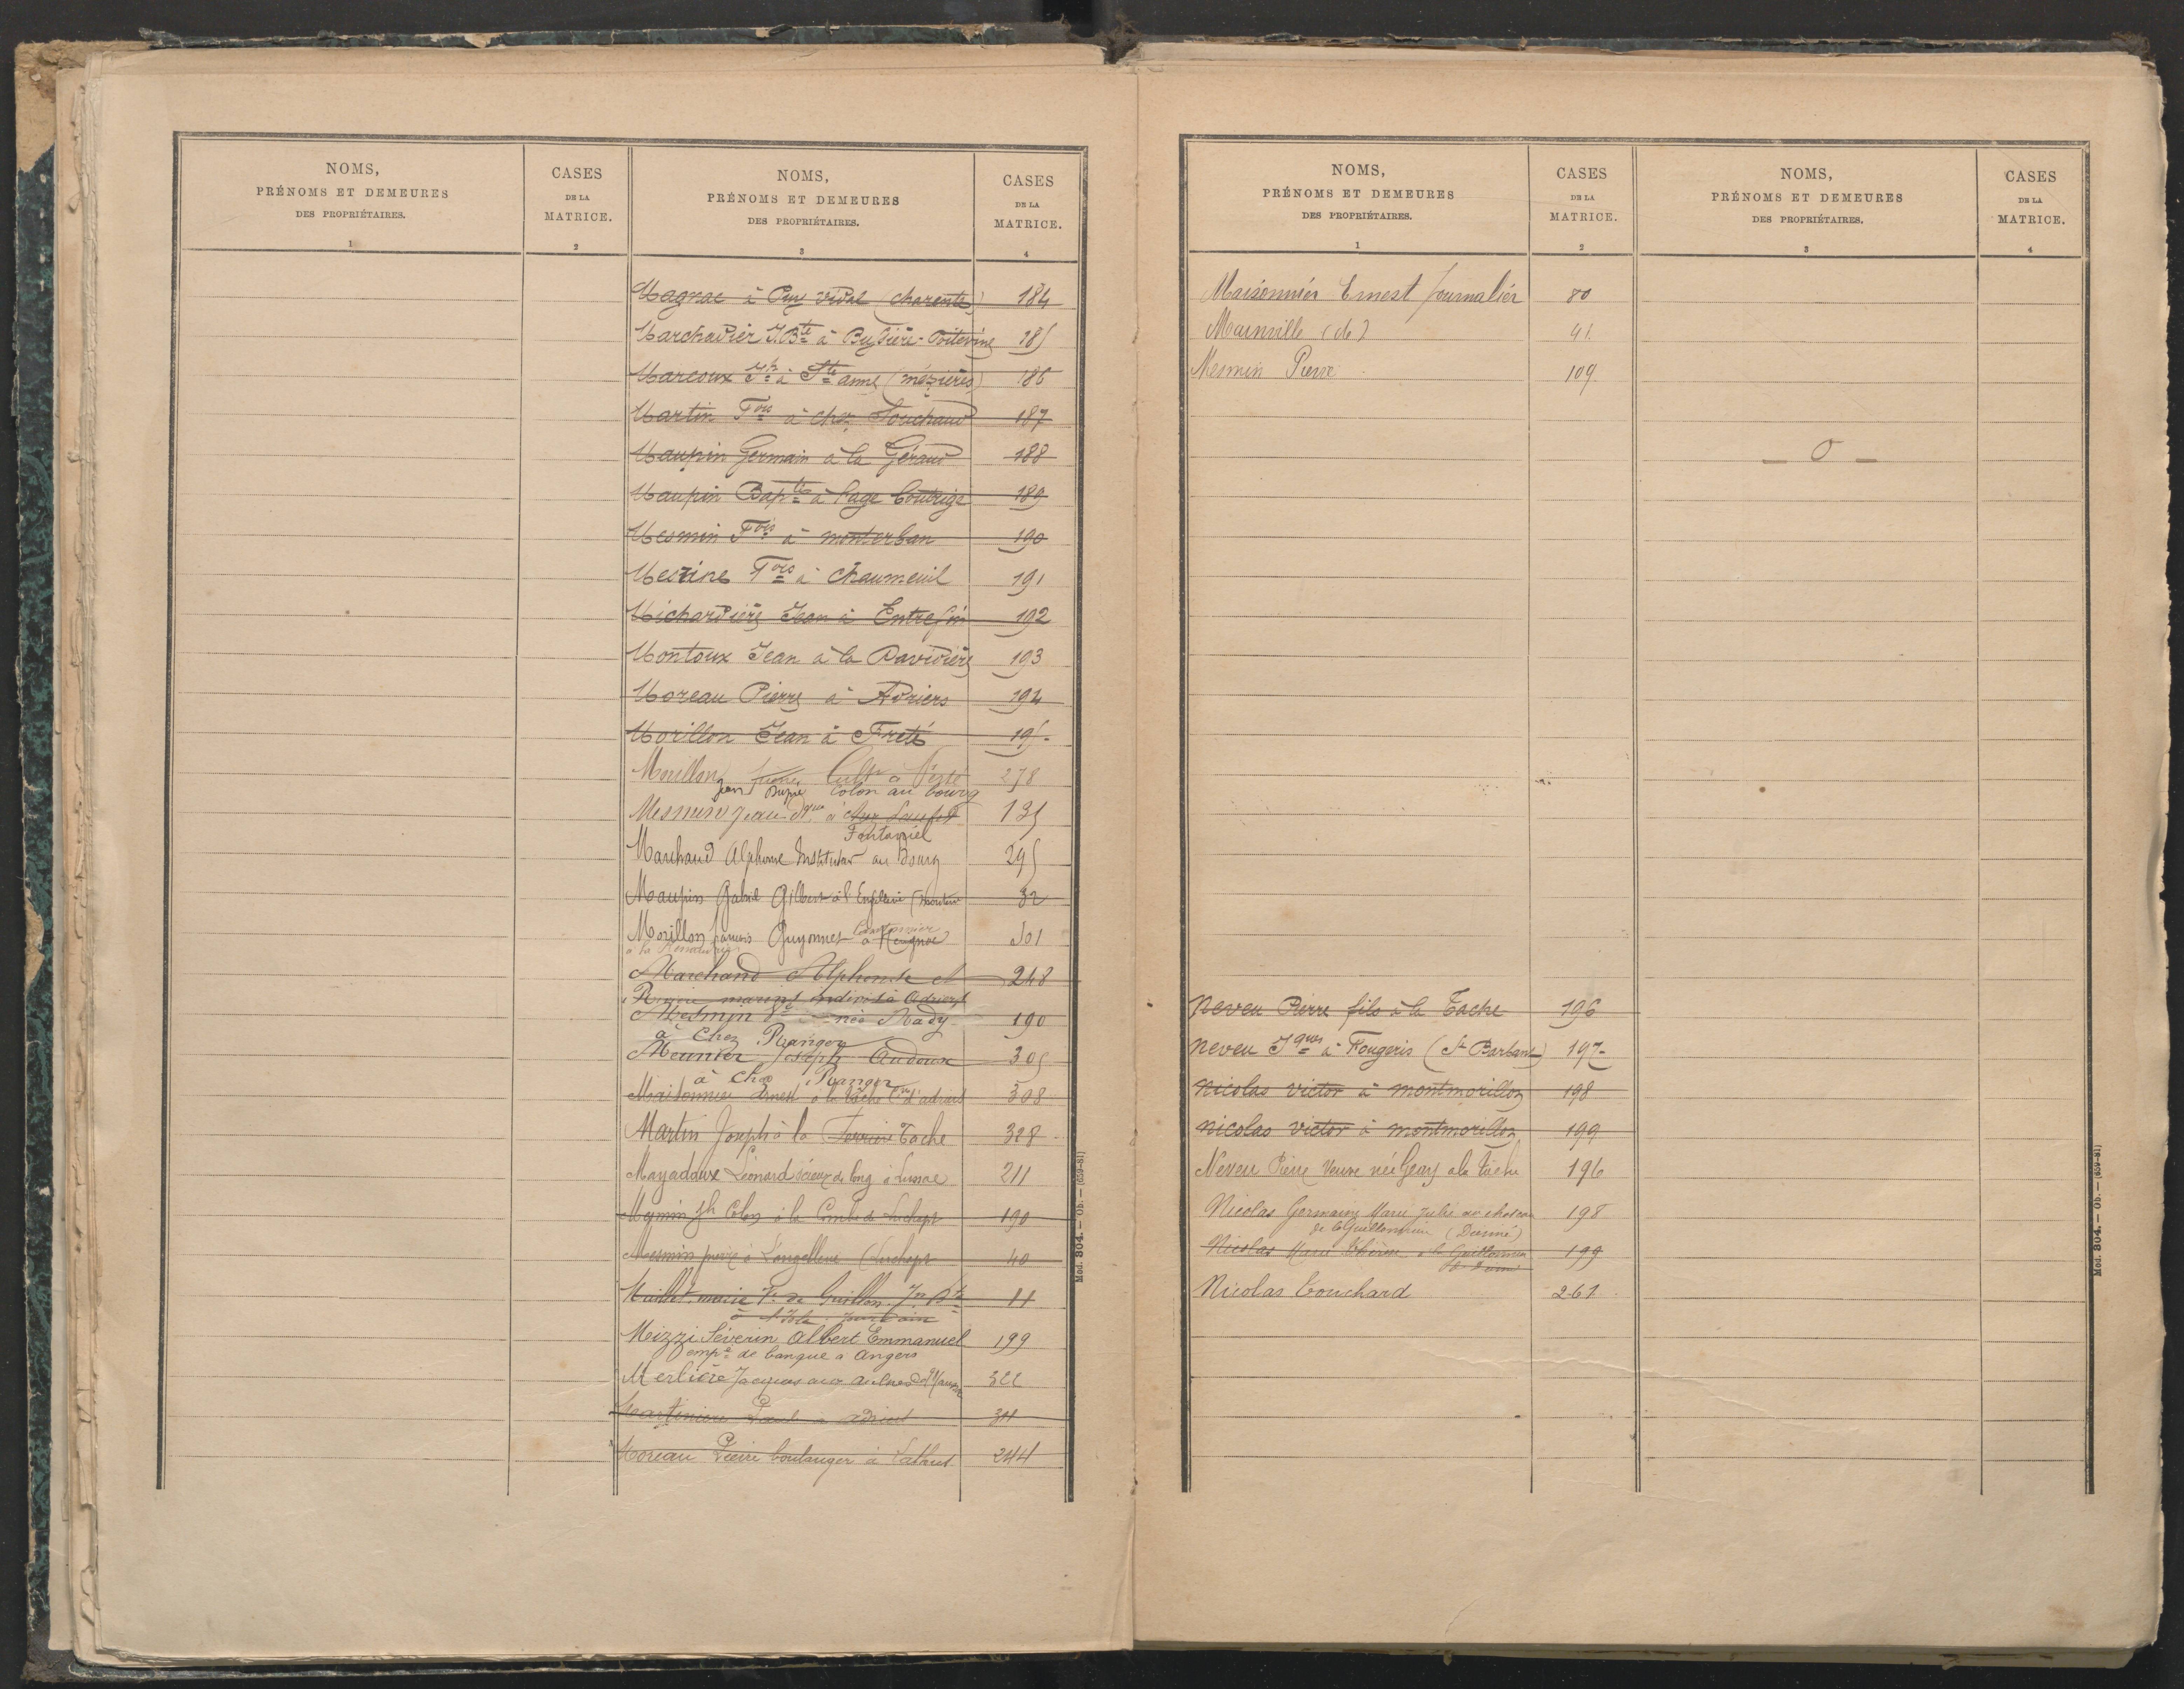 NOMS,
PRÉNOMS ET DEMEURES
DES PROPRIÉTAIRES.
1
CASES
DE LA
MATRICE.
2
NOMS,
PRÉNOMS ET DEMEURES
DES PROPRIÉTAIRES.
3
CASES
DE LA
MATRICE.
4
Magnac à Puy Vidal (Charente) 184
Marchadier J. Bte à Bussière-Poitevine 185
Marcoux Jh à Ste anne (mézières) 186
Martin Fois à chez Souchaud 187
Maupin Germain à la Géraud 188
Maupin Bapte à l'age Coutrige 189
Mesmin Fois à monterban 190
Mesrine Fois à Chaumeuil 191
Michardière Jean à Entrefin 192
Montoux Jean à la Davidière 193
Moreau Pierre à Adriers 194
Morillon Jean à Freté 195
Morillon Cultr à 278
Jean Colon au bourg
Mesmin Jean à chez 135
Fantariel
Marchaud Alphonse Instituteur au Bourg 295
Maupin Gabriel Gilbert à l' 32
Morillon francois Guyonnet à 301
à la
Marchand Alphonse et 248
indivis à Adriers
Mesmin née Mady 190
à Chez Ranger
Meunier Joseph Audoux 305
à Chez Ranger
Maisonnier Ernest à la tâche Cne d'adriers 308
Martin Joseph à la Ferrière Tache 328
Mayaddoux Léonard scieur de long à Lussac 211
Mesmin Jh Colon à la Combe de Luchapt 190
Mesmin pierre à (Luchapt 40
Maillet marie Guillon Jn Bte 11
Mizzi Séverin Albert Emmanuel 199
empé de banque à Angers
Merlière Jacques aux 322
Paul à adriers 311
Moreau Pierre boulanger à Lathus 244
Mod. 804. — Ob. — (659-81)
NOMS,
PRÉNOMS ET DEMEURES
DES PROPRIÉTAIRES.
1
CASES
DE LA
MATRICE.
2
NOMS,
PRÉNOMS ET DEMEURES
DES PROPRIÉTAIRES.
3
CASES
DE LA
MATRICE.
4
Maisonnier Ernest Journalier 80
Mainville (de) 41
Mesmin Pierre 109
— O —
Neveu Pierre fils à la Tache 196
Neveu Jques à Fougeris (St Barbant) 197
Nicolas victor à montmorillon 198
Nicolas victor à montmorillon 199
Neveu Pierre Veuve née Geay à la tâche 196
Nicolas Germaine Marie Julie au château 198
de la Guillonnière (Dienné)
Nicolas Marie à la 199
Nicolas Touchard 261
Mod. 804. — Ob. — (659-81)